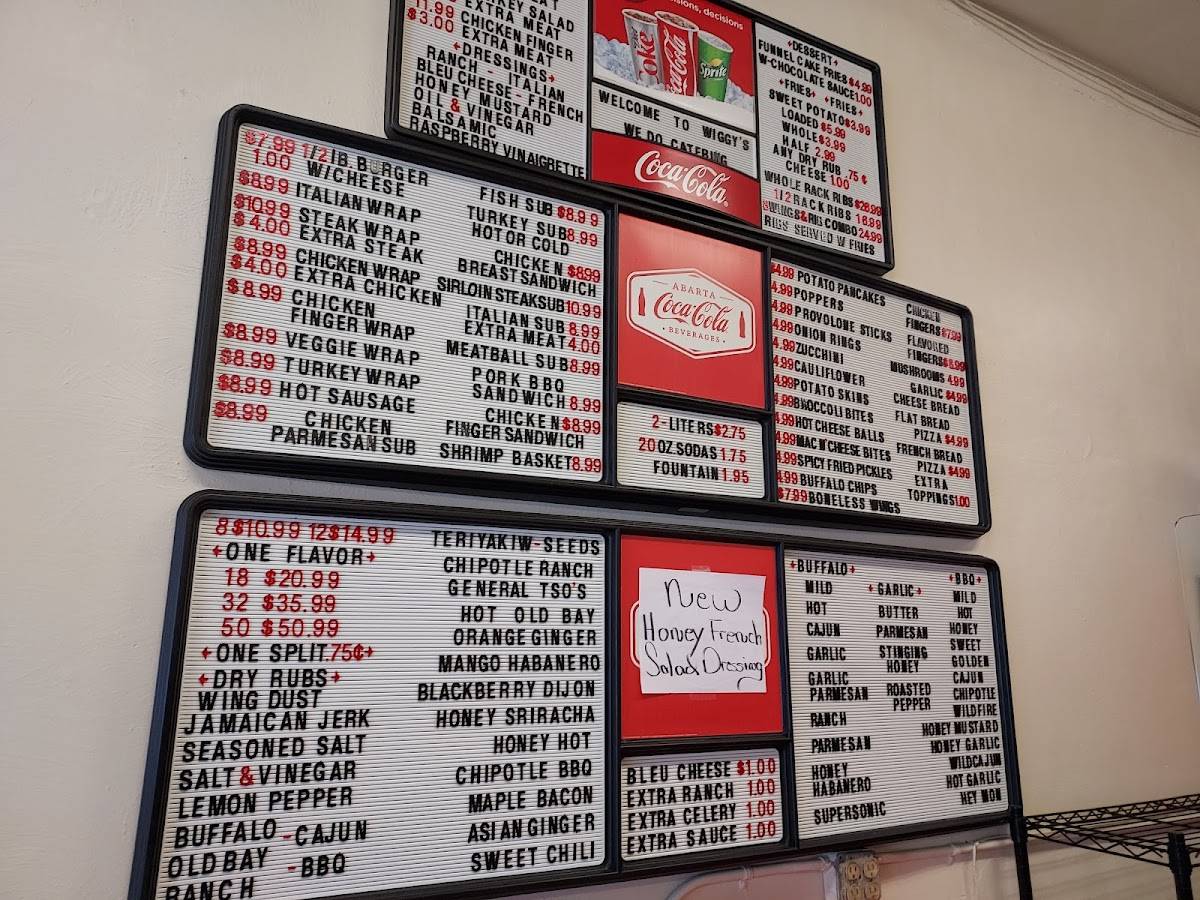 KEY SALAD
11.99 EXTRA MEAT
$3.00 CHICKEN FINGER
EXTRA MEAT
+DRESSINGS+
RANCH - ITALIAN
BLEU CHEESE - FRENCH
HONEY MUSTARD
OIL & VINEGAR
BALSAMIC
RASPBERRY VINAIGRETTE
decisions
Coke
Coca-Cola
Sprite
WELCOME TO WIGGY'S
WE DO CATERING
Coca-Cola
+DESSERT+
FUNNEL CAKE FRIES $4.99
W-CHOCOLATE SAUCE 1.00
+FRIES+ +FRIES+
SWEET POTATO $3.99
LOADED $5.99
WHOLE $3.99
HALF 2.99
ANY DRY RUB .75¢
CHEESE 1.00
WHOLE RACK RIBS $26.99
1/2 RACK RIBS 16.99
5WINGS&RIB COMBO 24.99
RIBS SERVED W FRIES
$7.99 1/2 lB. BURGER
1.00 W/CHEESE
$8.99 ITALIAN WRAP
$10.99 STEAK WRAP
$4.00 EXTRA STEAK
$8.99 CHICKEN WRAP
$4.00 EXTRA CHICKEN
$8.99 CHICKEN
FINGER WRAP
$8.99 VEGGIE WRAP
$8.99 TURKEY WRAP
$8.99 HOT SAUSAGE
$8.99 CHICKEN
PARMESAN SUB
FISH SUB $8.99
TURKEY SUB 8.99
HOT OR COLD
CHICKEN $8.99
BREAST SANDWICH
SIRLOIN STEAK SUB 10.99
ITALIAN SUB 8.99
EXTRA MEAT 4.00
MEATBALL SUB 8.99
PORK BBQ
SANDWICH 8.99
CHICKEN $8.99
FINGER SANDWICH
SHRIMP BASKET 8.99
ABARTA
Coca-Cola
BEVERAGES
2-LITERS $2.75
20 OZ SODAS 1.75
FOUNTAIN 1.95
$4.99 POTATO PANCAKES
4.99 POPPERS
4.99 PROVOLONE STICKS
4.99 ONION RINGS
4.99 ZUCCHINI
4.99 CAULIFLOWER
4.99 POTATO SKINS
4.99 BROCCOLI BITES
4.99 HOT CHEESE BALLS
4.99 MAC N' CHEESE BITES
4.99 SPICY FRIED PICKLES
4.99 BUFFALO CHIPS
$7.99 BONELESS WINGS
CHICKEN
FINGERS $7.99
FLAVORED
FINGERS $8.99
MUSHROOMS 4.99
GARLIC $4.99
CHEESE BREAD
FLAT BREAD
PIZZA $4.99
FRENCH BREAD
PIZZA $4.99
EXTRA
TOPPINGS 1.00
8 $10.99 12 $14.99
+ONE FLAVOR+
18 $20.99
32 $35.99
50 $50.99
+ONE SPLIT .75¢+
+DRY RUBS+
WING DUST
JAMAICAN JERK
SEASONED SALT
SALT & VINEGAR
LEMON PEPPER
BUFFALO - CAJUN
OLD BAY - BBQ
RANCH
TERIYAKI W-SEEDS
CHIPOTLE RANCH
GENERAL TSO'S
HOT OLD BAY
ORANGE GINGER
MANGO HABANERO
BLACKBERRY DIJON
HONEY SRIRACHA
HONEY HOT
CHIPOTLE BBQ
MAPLE BACON
ASIAN GINGER
SWEET CHILI
New
Honey French
Salad Dressing
BLEU CHEESE $1.00
EXTRA RANCH 1.00
EXTRA CELERY 1.00
EXTRA SAUCE 1.00
+BUFFALO+
MILD
HOT
CAJUN
GARLIC
GARLIC
PARMESAN
RANCH
PARMESAN
HONEY
HABANERO
SUPERSONIC
+GARLIC+
BUTTER
PARMESAN
STINGING
HONEY
ROASTED
PEPPER
+BBQ+
MILD
HOT
HONEY
SWEET
GOLDEN
CAJUN
CHIPOTLE
WILDFIRE
HONEY MUSTARD
HONEY GARLIC
WILDCAJUN
HOT GARLIC
HEY MON